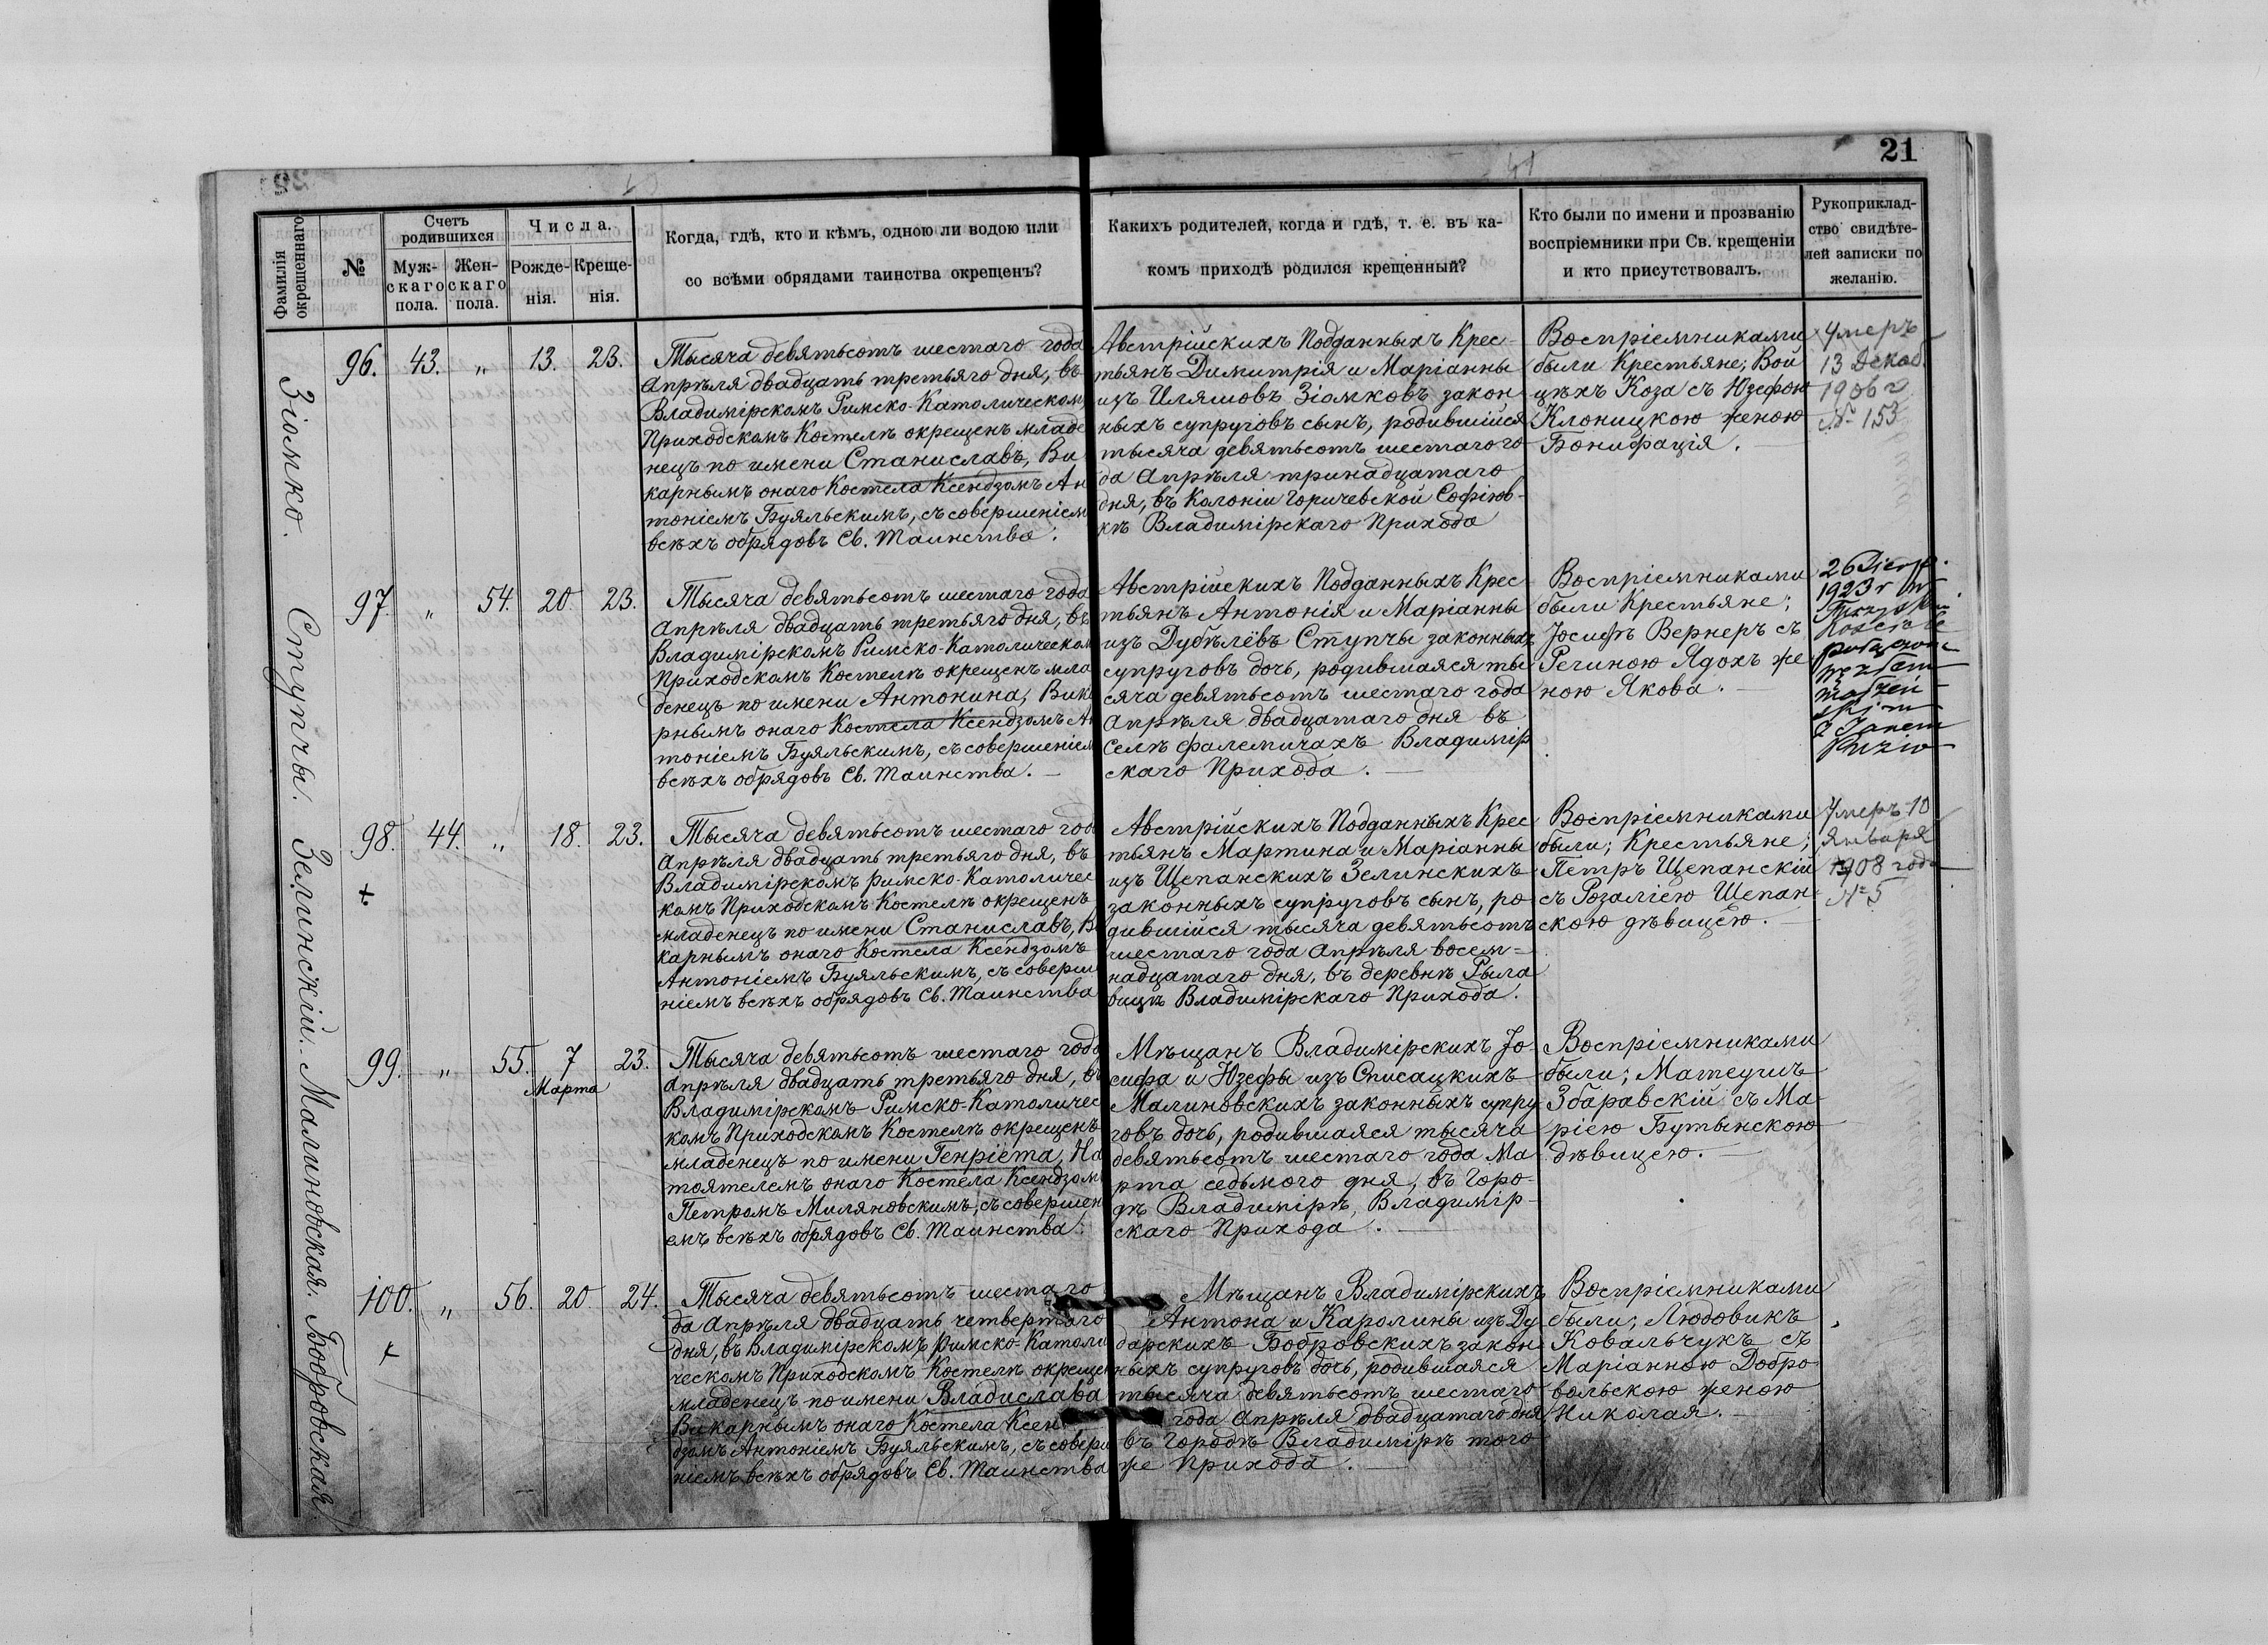 21
41
Фамилія окрещеннаго
№
Счетъ родившихся
Муж-скаго пола.
Жен-скаго пола.
Числа.
Рожде-нія.
Креще-нія.
Когда, гдѣ, кто и кѣмъ, одною ли водою или
со всѣми обрядами таинства окрещенъ?
Какихъ родителей, когда и гдѣ, т. е. въ ка-
комъ приходѣ родился крещенный?
Кто были по имени и прозванію
воспріемники при Св. крещеніи
и кто присутствовалъ.
Рукоприклад-
ство свидѣте-
лей записки по
желанію.
Зіомко.
96. 43. „ 13. 23.
Тысяча девятьсотъ шестаго года
Апрѣля двадцать третьяго дня, въ
Владимірскомъ Римско-Католическом
Приходскомъ Костелѣ окрещенъ младе
нецъ по имени Станиславъ, Ви
карнымъ онаго Костела Ксендзомъ Ан
тоніемъ Буяльскимъ, съ совершеніем
всѣхъ обрядовъ Св. Таинства.
Австрійскихъ Подданныхъ Крес-
тьянъ Димитрія и Маріанны
изъ Иляшовъ Зіомковъ закон-
ныхъ супруговъ сынъ, родившійся
тысяча девятьсотъ шестаго го
да Апрѣля тринадцатаго
дня, въ Колоніи Горичевской Софіюв-
кѣ Владимірскаго Прихода
Воспріемниками
были Крестьяне; Вой
цѣхъ Коза съ Юзефою
Клоницкою женою
Бонифація.
Умеръ
13 Декаб.
1906 г
№ 153
Ступчы.
97. „ 54. 20 23.
Тысяча девятьсотъ шестаго года
Апрѣля двадцать третьяго дня, въ
Владимірскомъ Римско-Католическом
Приходскомъ Костелѣ окрещенъ мла
денецъ по имени Антонина, Вика
рнымъ онаго Костела Ксендзомъ Ан
тоніемъ Буяльскимъ, съ совершеніем
всѣхъ обрядовъ Св. Таинства.
Австрійскихъ Подданныхъ Крес
тьянъ Антонія и Маріанны
изъ Дубѣлёвъ Ступчы законныхъ
супруговъ дочь, родившаяся ты
сяча девятьсотъ шестаго года
Апрѣля двадцатаго дня въ
Селѣ Фалемичахъ Владимір
скаго Прихода.
Воспріемниками
были Крестьяне;
Іосифъ Вернеръ съ
Региною Ядохъ же
ною Якова.
26 Sierp.
1923 r w
Kościele
małżeń
skim
z Janem
Зелинскій.
98. 44. „ 18. 23.
+
Тысяча девятьсотъ шестаго года
Апрѣля двадцать третьяго дня, въ
Владимірскомъ Римско-Католичес
комъ Приходскомъ Костелѣ окрещенъ
младенецъ по имени Станиславъ, Ви
карнымъ онаго Костела Ксендзомъ
Антоніемъ Буяльскимъ, съ соверше
ніемъ всѣхъ обрядовъ Св. Таинства
Австрійскихъ Подданныхъ Крес
тьянъ Мартина и Маріанны
изъ Щепанскихъ Зелинскихъ
законныхъ супруговъ сынъ, ро
дившійся тысяча девятьсотъ
шестаго года Апрѣля восем-
надцатаго дня, въ деревнѣ Рыла
вицѣ Владимірскаго Прихода.
Воспріемниками
были; Крестьяне;
Петръ Щепанскій
съ Розаліею Щепан
скою дѣвицею.
Умеръ 10
Января
1908 года
№ 5
Малиновская.
99. „ 55. 7 Марта 23.
Тысяча девятьсотъ шестаго года
Апрѣля двадцать третьяго дня, въ
Владимірскомъ Римско-Католичес
комъ Приходскомъ Костелѣ окрещенъ
младенецъ по имени Генріета, На
тоятелемъ онаго Костела Ксендзом
Петромъ Миляновскимъ, съ совершен
емъ всѣхъ обрядовъ Св. Таинства.
Мѣщанъ Владимірскихъ Іо-
сифа и Юзефы изъ Списацкихъ
Малиновскихъ законныхъ супру
говъ дочь, родившаяся тысяча
девятьсотъ шестаго года Ма
рта седьмого дня, въ Горо-
дѣ Владимірѣ, Владимір-
скаго Прихода.
Воспріемниками
были; Матеушъ
Збаравскій съ Ма-
ріею Бутынскою
дѣвицею.
Бобровская
100. „ 56. 20. 24.
+
Тысяча девятьсотъ шестаго
да Апрѣля двадцать четвертаго
дня, въ Владимірскомъ Римско-Католи
ческомъ Приходскомъ Костелѣ окрещен
младенецъ по имени Владислава
Викарнымъ онаго Костела Ксен
дзомъ Антоніемъ Буяльскимъ, съ соверш
ніемъ всѣхъ обрядовъ Св. Таинства
Мѣщанъ Владимірскихъ
Антона и Каролины изъ Ду
дарскихъ Бобровскихъ закон
ныхъ супруговъ дочь, родившаяся
тысяча девятьсотъ шестаго
года Апрѣля двадцатаго дня
въ Городѣ Владимірѣ того
же Прихода.
Воспріемниками
были; Людовикъ
Ковальчукъ съ
Маріанною Добро-
вольскою женою
Николая.